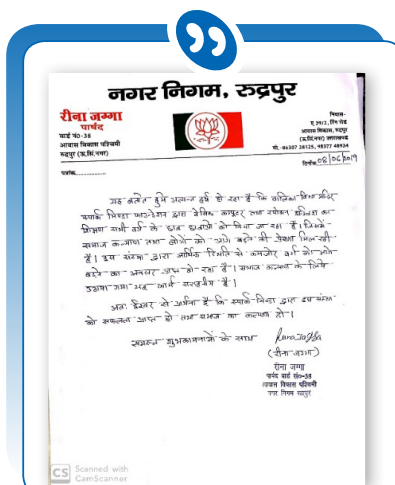 नगर निगम, रुद्रपुर
रीना जग्गा
पार्षद
वार्ड नं0-38
आवास विकास पश्चिमी
रुद्रपुर (ऊ.सिं.नगर)
निवास-
आवास विकास, रुद्रपुर
(ऊ.सिं.नगर) उत्तराखण्ड
पत्रांक
दिनांक 08/06/2019
यह बताते हुये अत्यन्त हर्ष हो रहा है कि
द्वारा बेसिक कम्प्यूटर तथा
शिक्षण सभी वर्ग के छात्र छात्राओं को दिया जा रहा है। जिससे
समाज कल्याण तथा लोगों को आगे बढ़ने की प्रेरणा मिल रही
है। इस संस्था द्वारा आर्थिक स्थिति से कमजोर वर्ग को आगे
बढ़ने का अवसर प्राप्त हो रहा है। समाज कल्याण के लिये
उठाया गया यह कार्य सराहनीय है।
अतः ईश्वर से प्रार्थना है कि स्पार्क मिण्डा द्वारा इस संस्था
को सफलता प्राप्त हो तथा समाज का कल्याण हो।
समस्त शुभकामनाओं के साथ
Reena Jagga
(रीना जग्गा)
रीना जग्गा
पार्षद वार्ड सं0-38
आवास विकास पश्चिमी
नगर निगम रुद्रपुर
CS Scanned with
CamScanner